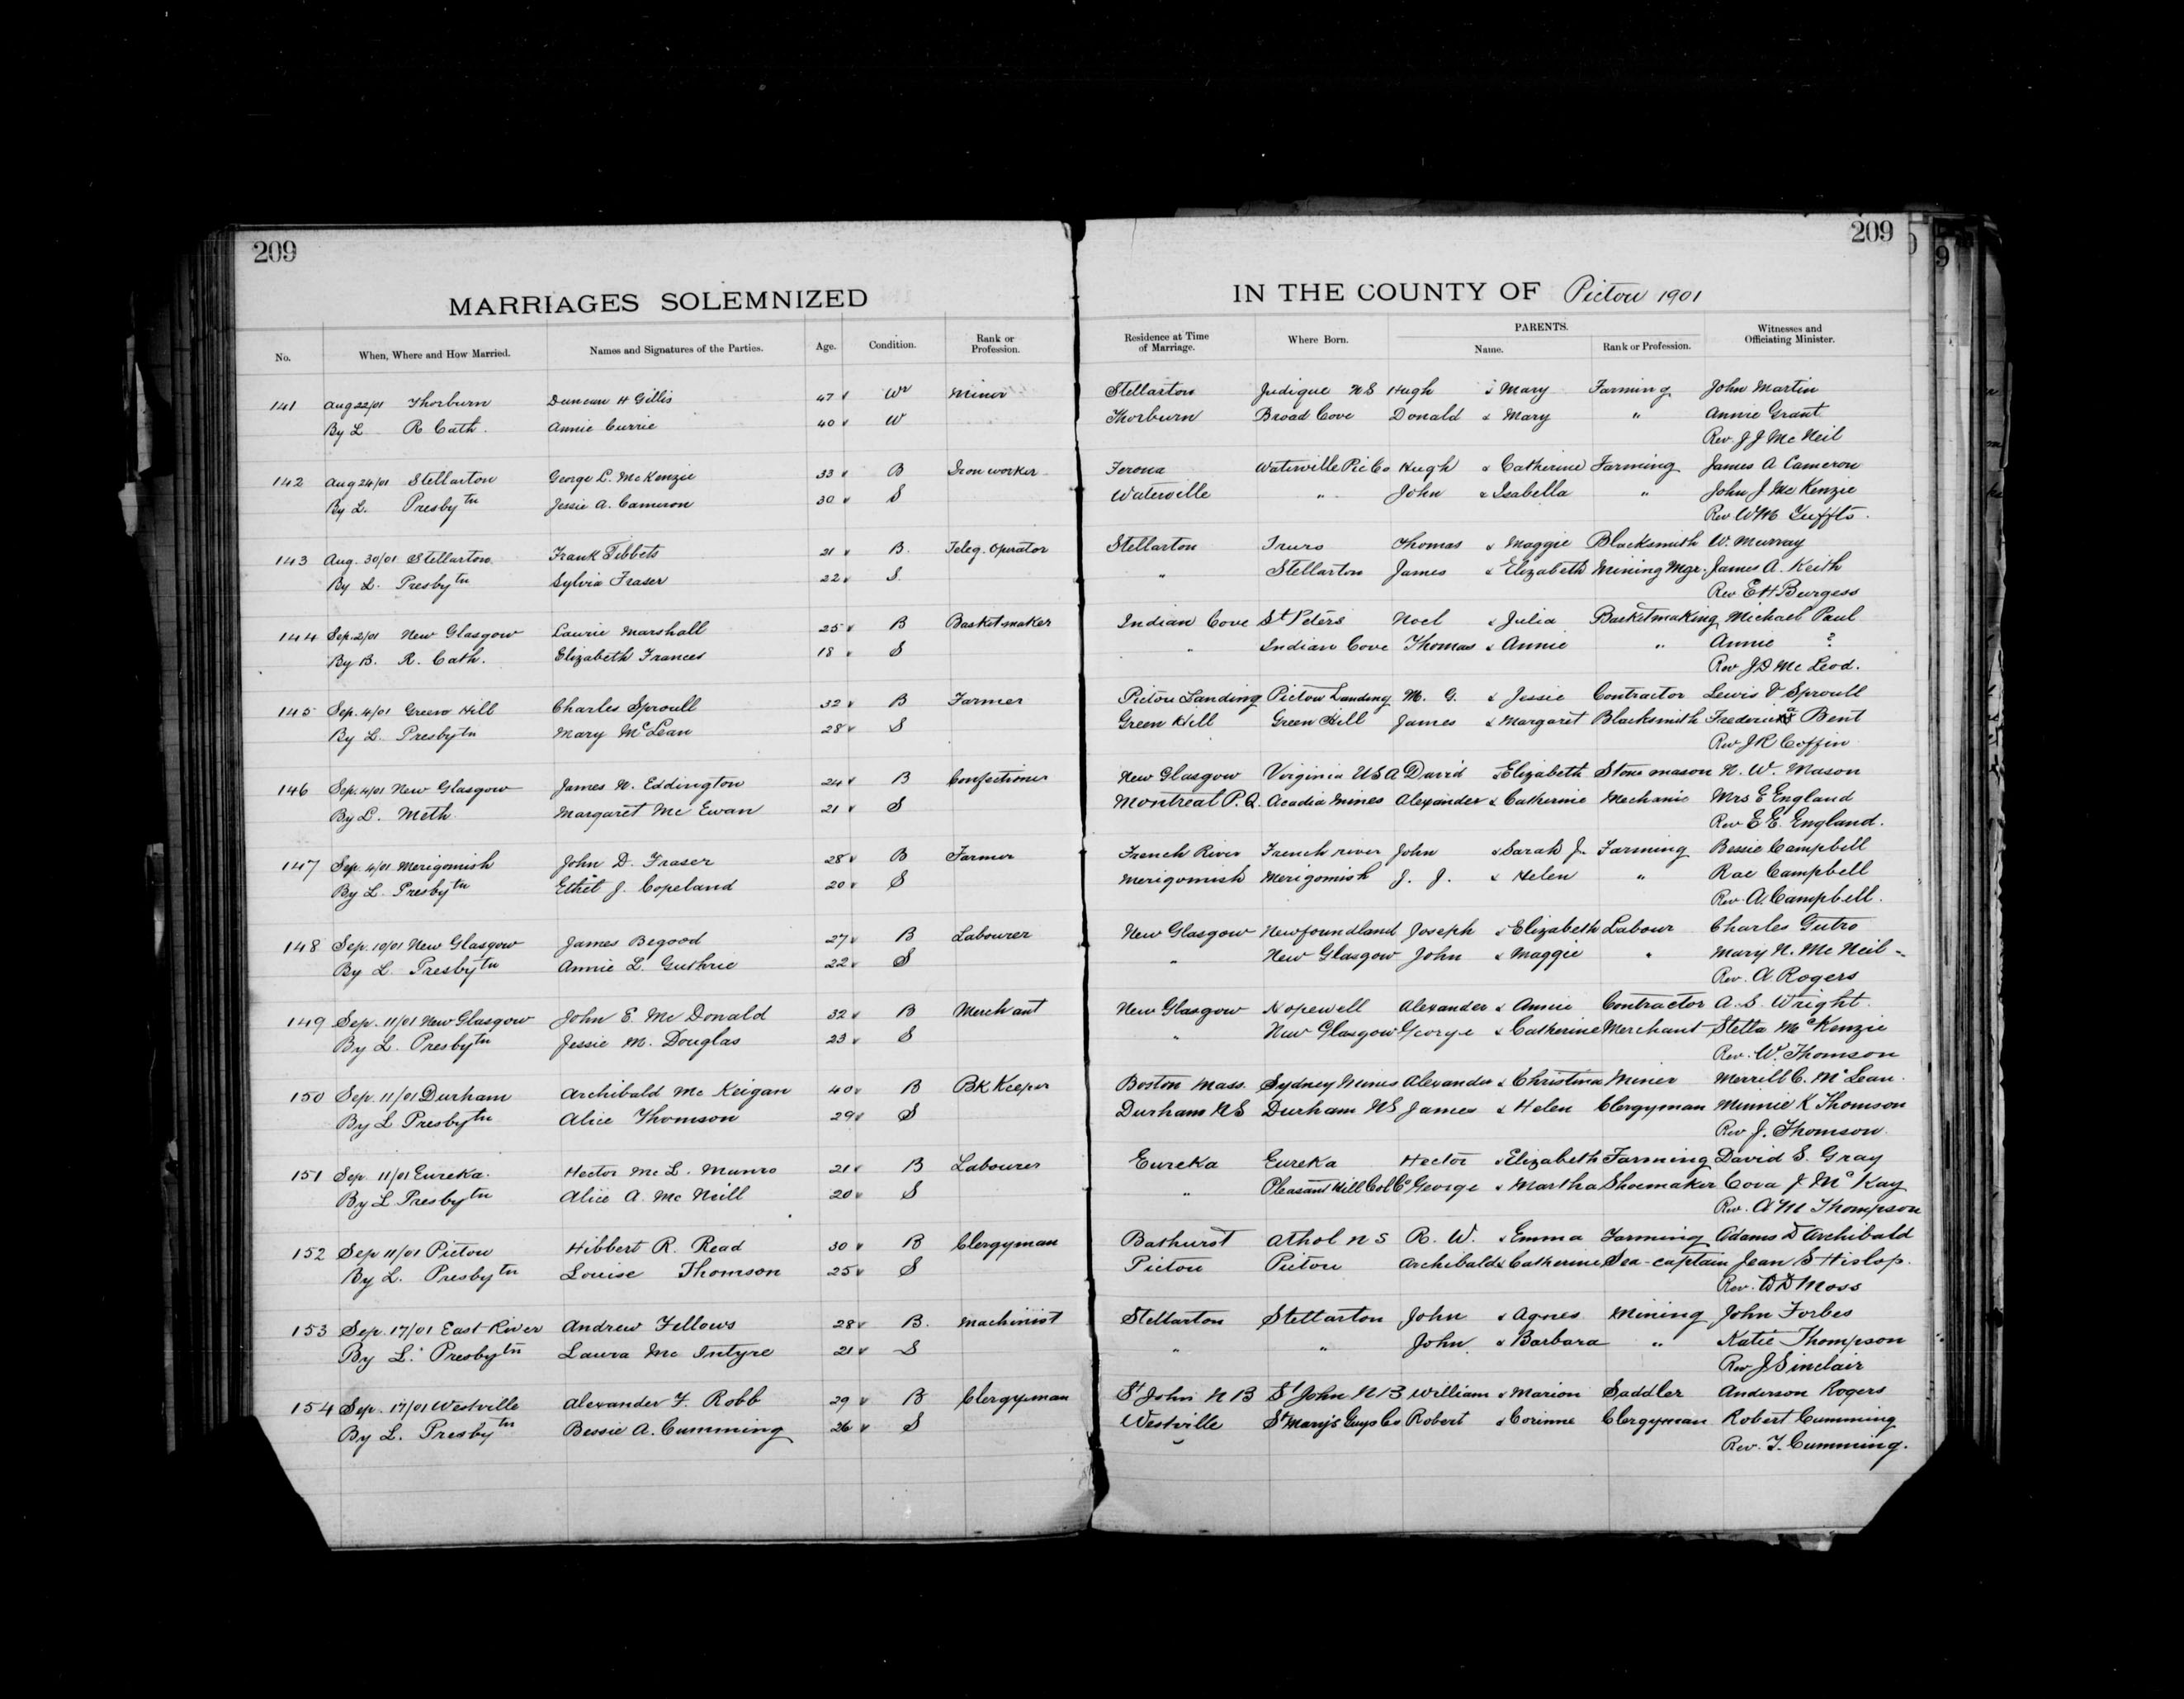 209
209
MARRIAGES SOLEMNIZED IN THE COUNTY OF Pictou 1901
No. When, Where and How Married. Names and Signatures of the Parties. Age. Condition. Rank or Profession. Residence at Time of Marriage. Where Born. PARENTS. Name. Rank or Profession. Witnesses and Officiating Minister.
141 Aug 22/01 Thorburn Duncan H Gillis 47 Wr Miner Stellarton Judique N S Hugh & Mary Farming John Martin
By L R Cath. Annie Currie 40 W Thorburn Broad Cove Donald & Mary " Annie Grant
Rev. J J Mc Neil
142 Aug 24/01 Stellarton George L. McKenzie 33 B Iron worker Ferona Waterville Pic Co Hugh & Catherine Farming James A Cameron
By L. Presbytn Jessie A. Cameron 30 S Waterville " John & Isabella " John J Mc Kenzie
Rev W M Tuffts.
143 Aug. 30/01 Stellarton Frank Tibbets 21 B. Teleg. Operator Stellarton Truro Thomas & Maggie Blacksmith W. Murray
By L. Presbytn Sylvia Fraser 22 S. " Stellarton James & Elizabeth Mining Mgr. James A. Keith
Rev E H Burgess
144 Sep. 2/01 New Glasgow Laurie Marshall 25 B Basketmaker Indian Cove St Peters Noel & Julia Basketmaking Michael Paul
By B. R. Cath. Elizabeth Frances 18 S " Indian Cove Thomas & Annie " Annie ?
Rev J D Mc Leod.
145 Sep. 4/01 Green Hill Charles Sproull 32 B Farmer Pictou Landing Pictou Landing M. G. & Jessie Contractor Lewis V Sproull
By L. Presbytn Mary McLean 28 S Green Hill Green Hill James & Margaret Blacksmith Bent
Rev J R Coffin
146 Sep. 4/01 New Glasgow James N. Eddington 24 B Confectioner New Glasgow Virginia USA David & Elizabeth Stone mason N. W. Mason
By L. Meth. Margaret Mc Ewan 21 S Montreal P. Q. Acadia Mines Alexander & Catherine Mechanic Mrs E England
Rev E E. England.
147 Sep. 4/01 Merigomish John D. Fraser 28 B Farmer French River French river John & Sarah J. Farming Bessie Campbell
By L Presbytn Ethel J. Copeland 20 S Merigomish Merigomish J. J. & Helen " Rae Campbell
Rev. A. Campbell.
148 Sep. 10/01 New Glasgow James Begood 27 B Labourer New Glasgow Newfoundland Joseph & Elizabeth Labour Charles Gutro
By L. Presbytn Annie L. Guthrie 22 S " New Glasgow John & Maggie " Mary N. Mc Neil
Rev. A Rogers
149 Sep. 11/01 New Glasgow John E. Mc Donald 32 B Merchant New Glasgow Hopewell Alexander & Annie Contractor A. S. Wright
By L. Presbytn Jessie M. Douglas 23 S " New Glasgow George & Catherine Merchant Stella McKenzie
Rev. W. Thomson
150 Sep. 11/01 Durham Archibald Mc Keigan 40 B Bk Keeper Boston Mass. Sydney Mines Alexander & Christina Miner Merrill C. McLean.
By L Presbytn Alice Thomson 29 S Durham N S Durham N S James & Helen Clergyman Minnie K Thomson
Rev J. Thomson.
151 Sep. 11/01 Eureka. Hector Mc L. Munro 21 B Labourer Eureka Eureka Hector & Elizabeth Farming David S. Gray
By L Presbytn Alice A. Mc Neill 20 S " Pleasant Hill Col Co George & Martha Shoemaker Cova J McKay
Rev. A M Thompson
152 Sep 11/01 Pictou Hibbert R. Read 30 B Clergyman Bathurst Athol N S R. W. & Emma Farming Adams D Archibald
By L. Presbytn Louise Thomson 25 S Pictou Pictou Archibald & Catherine Sea-captain Jean S Hislop.
Rev. W D Moss
153 Sep. 17/01 East River Andrew Fellows 28 B. Machinist Stellarton Stellarton John & Agnes Mining John Forbes
By L. Presbytn Laura Mc Intyre 21 S " " John & Barbara " Katie Thompson
Rev J Sinclair
154 Sep. 17/01 Westville Alexander F. Robb 29 B Clergyman St John N B St John N B William & Marion Saddler Anderson Rogers
By L. Presbytn Bessie A. Cumming 26 S Westville St Mary's Guys Co Robert & Corinne Clergyman Robert Cumming
Rev. T. Cumming.